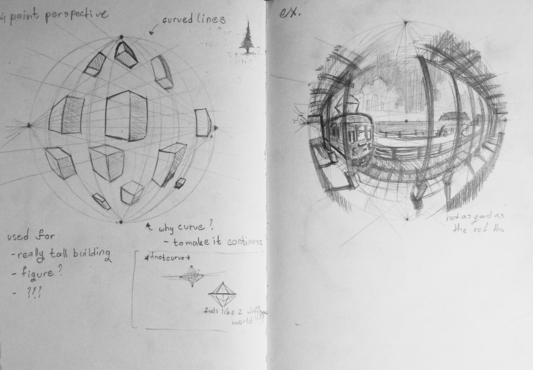 4 point perspective
curved lines
used for
- really tall building
- figure?
- ???
why curve?
- to make it continue
if not curve
feels like 2 different
world
ex.
not as good as
the ref tho